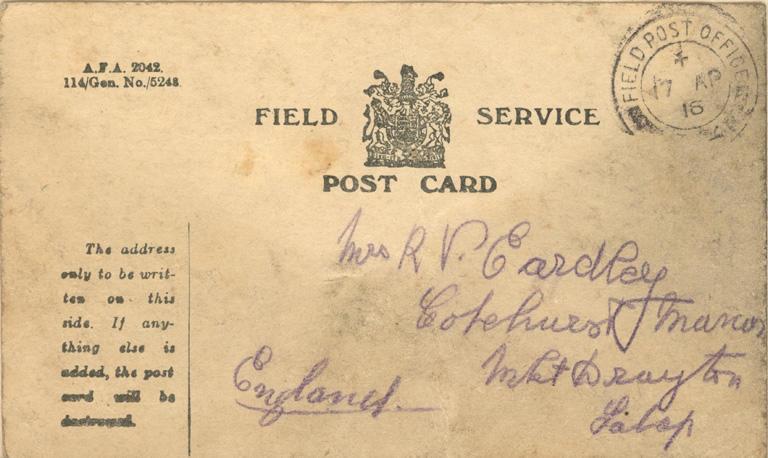 A.F.A. 2042.
114/Gen. No./5248.
FIELD POST OFFICE
17 AP
16
FIELD SERVICE
POST CARD
The address
only to be writ-
ten on this
side. If any-
thing else is
added, the post
card will be
destroyed.
Mrs R V. Eardley
Cotehurst Manor
Mkt Drayton
Salop
England.